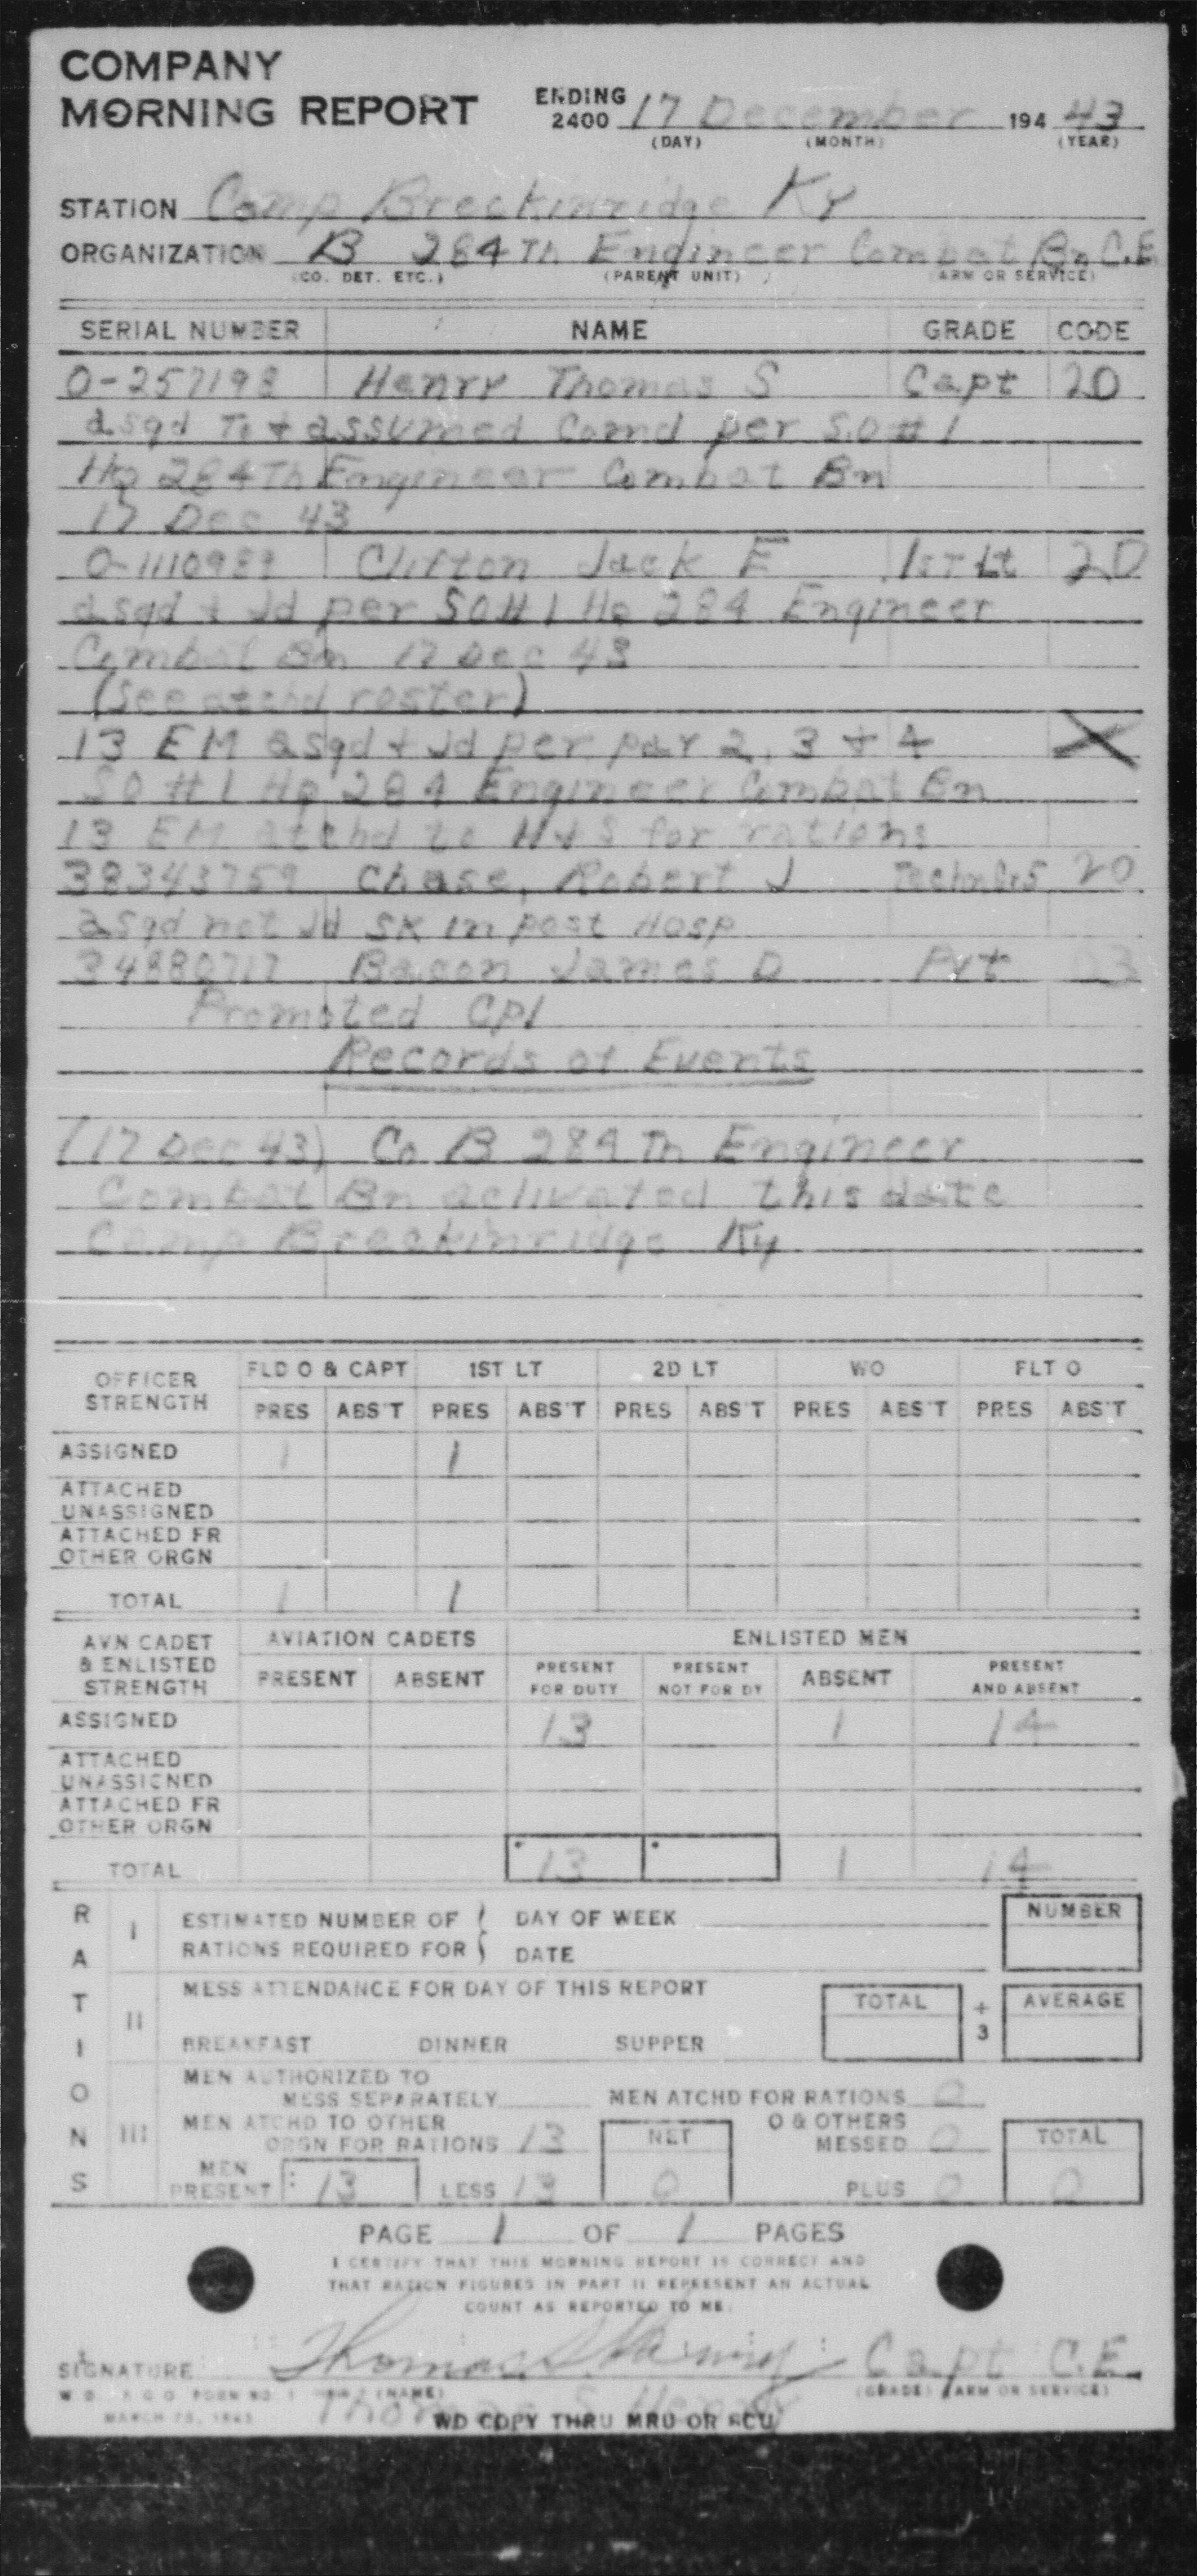 COMPANY
MORNING REPORT
ENDING
2400 17 December 194 43
(DAY) (MONTH) (YEAR)
STATION Camp Breckinridge Ky
ORGANIZATION B 284Th Engineer Combat Bn C.E
(CO. DET. ETC.) (PARENT UNIT) (ARM OR SERVICE)
SERIAL NUMBER NAME GRADE CODE
O-257193 Henry Thomas S Capt 20
asgd To & assumed Comd per S.O # 1
Hq 284Th Engineer Combat Bn
17 Dec 43
O-1110989 Clifton Jack E 1st Lt 20
asgd & Jd per SO # 1 Hq 284 Engineer
Combat Bn 17 Dec 43
(See atchd roster)
13 EM asgd & Jd per par 2, 3 & 4
SO # 1 Hq 284 Engineer Combat Bn
13 EM atchd to H & S for rations
38343759 Chase, Robert J 20
asgd not Jd SK in post Hosp
34880717 Bacon James D Pvt
Promoted Cpl
Records of Events
(17 Dec 43) Co B 284 Th Engineer
Combat Bn activated this date
Camp Breckinridge Ky
OFFICER STRENGTH FLD O & CAPT 1ST LT 2D LT WO FLT O
PRES ABS'T PRES ABS'T PRES ABS'T PRES ABS'T PRES ABS'T
ASSIGNED 1 1
ATTACHED
UNASSIGNED
ATTACHED FR
OTHER ORGN
TOTAL 1 1
AVN CADET & ENLISTED STRENGTH AVIATION CADETS ENLISTED MEN
PRESENT ABSENT PRESENT FOR DUTY PRESENT NOT FOR DY ABSENT PRESENT AND ABSENT
ASSIGNED 13 1 14
ATTACHED
UNASSIGNED
ATTACHED FR
OTHER ORGN
TOTAL 13 1 14
RATIONS
I ESTIMATED NUMBER OF DAY OF WEEK NUMBER
RATIONS REQUIRED FOR DATE
II MESS ATTENDANCE FOR DAY OF THIS REPORT TOTAL ÷ 3 AVERAGE
BREAKFAST DINNER SUPPER
III MEN AUTHORIZED TO
MESS SEPARATELY MEN ATCHD FOR RATIONS 0
MEN ATCHD TO OTHER
ORGN FOR RATIONS 13 NET O & OTHERS
MESSED 0 TOTAL
MEN PRESENT 13 LESS 13 0 PLUS 0 0
PAGE 1 OF 1 PAGES
I CERTIFY THAT THIS MORNING REPORT IS CORRECT AND
THAT RATION FIGURES IN PART II REPRESENT AN ACTUAL
COUNT AS REPORTED TO ME.
SIGNATURE Thomas S Henry Capt C.E.
(NAME) (GRADE) (ARM OR SERVICE)
W D A G O FORM NO. 1
MARCH 1943
Thomas S Henry
WD COPY THRU MRU OR SCU